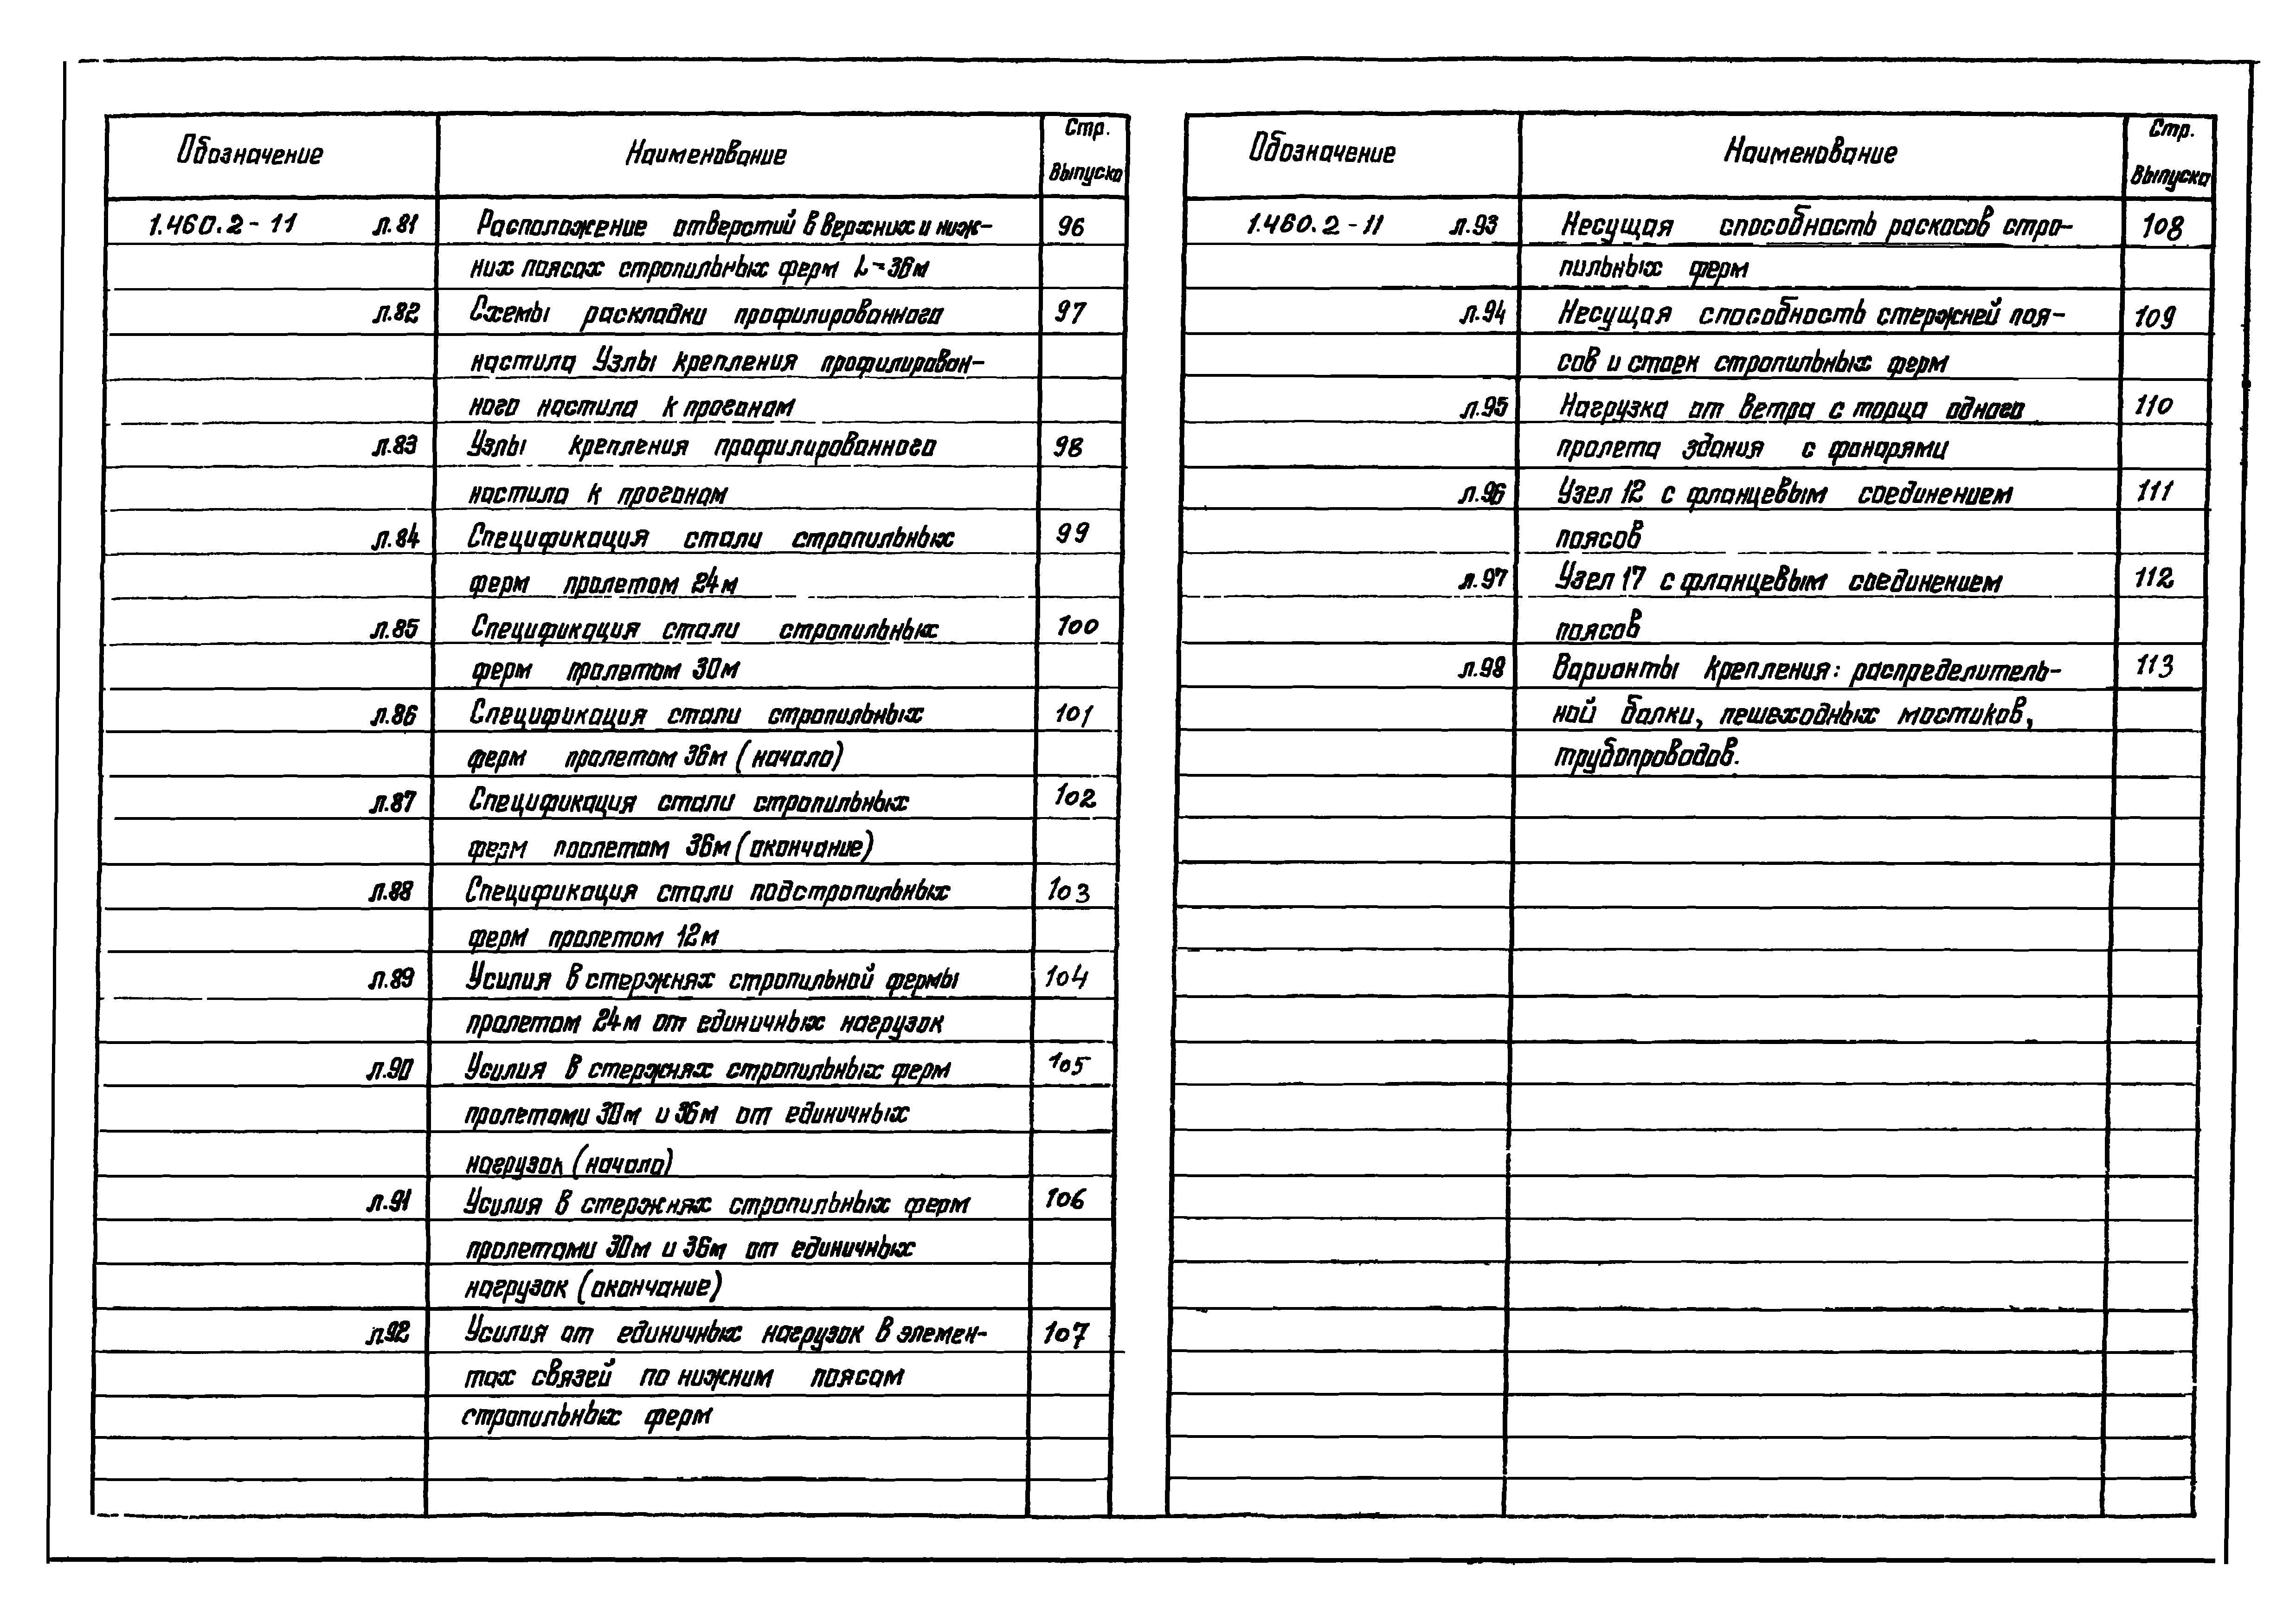 Обозначение Наименование Стр. выпуска
1.460.2-11 л.81 Расположение отверстий в верхних и ниж- 96
них поясах стропильных ферм L=36м
л.82 Схемы раскладки профилированного 97
настила Узлы крепления профилирован-
ного настила к прогонам
л.83 Узлы крепления профилированного 98
настила к прогонам
л.84 Спецификация стали стропильных 99
ферм пролетом 24м
л.85 Спецификация стали стропильных 100
ферм пролетом 30м
л.86 Спецификация стали стропильных 101
ферм пролетом 36м (начало)
л.87 Спецификация стали стропильных 102
ферм пролетом 36м (окончание)
л.88 Спецификация стали подстропильных 103
ферм пролетом 12м
л.89 Усилия в стержнях стропильной фермы 104
пролетом 24м от единичных нагрузок
л.90 Усилия в стержнях стропильных ферм 105
пролетами 30м и 36м от единичных
нагрузок (начало)
л.91 Усилия в стержнях стропильных ферм 106
пролетами 30м и 36м от единичных
нагрузок (окончание)
л.92 Усилия от единичных нагрузок в элемен- 107
тах связей по нижним поясам
стропильных ферм
Обозначение Наименование Стр. выпуска
1.460.2-11 л.93 Несущая способность раскосов стро- 108
пильных ферм
л.94 Несущая способность стержней поя- 109
сов и стоек стропильных ферм
л.95 Нагрузка от ветра с торца одного 110
пролета здания с фонарями
л.96 Узел 12 с фланцевым соединением 111
поясов
л.97 Узел 17 с фланцевым соединением 112
поясов
л.98 Варианты крепления: распределитель- 113
ной балки, пешеходных мостиков,
трубопроводов.